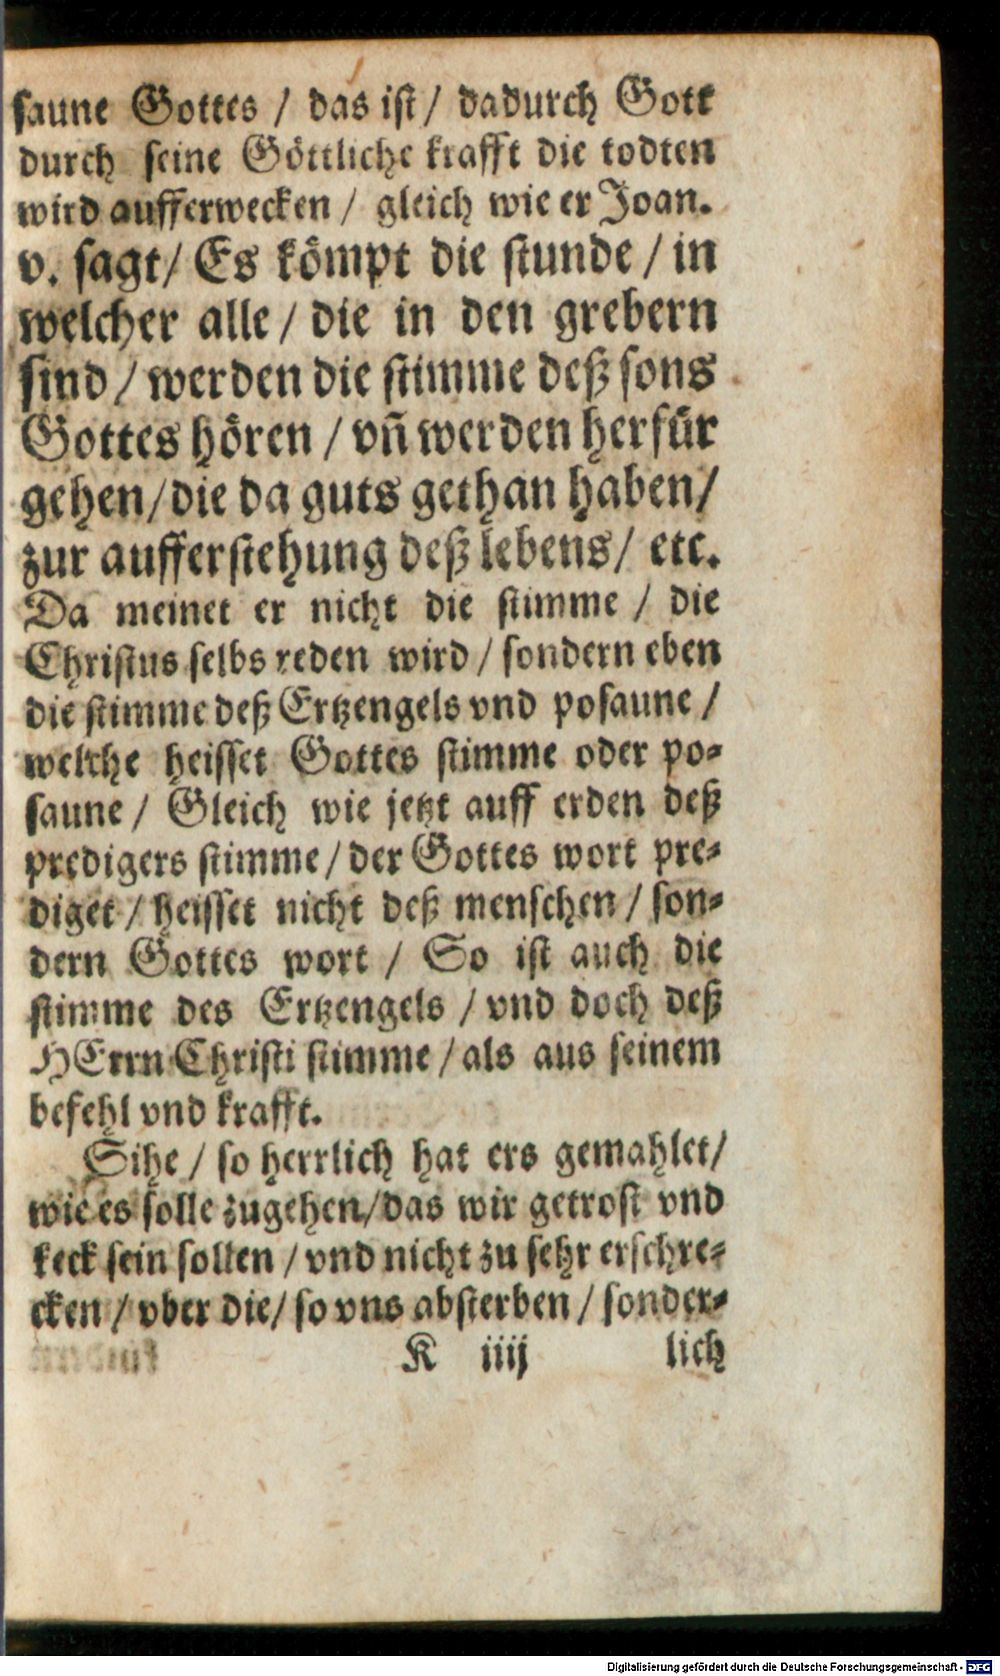 saune Gottes / das ist / dadurch Gott
durch seine Göttliche krafft die todten
wird aufferwecken / gleich wie er Joan.
v. sagt / Es kömpt die stunde / in
welcher alle / die in den grebern
sind / werden die stimme deß sons
Gottes hören / vñ werden herfür
gehen / die da guts gethan haben /
zur aufferstehung deß lebens / etc.
Da meinet er nicht die stimme / die
Christus selbs reden wird / sondern eben
die stimme deß Ertzengels vnd posaune /
welche heisset Gottes stimme oder po-
saune / Gleich wie jetzt auff erden deß
predigers stimme / der Gottes wort pre-
diget / heisset nicht deß menschen / son-
dern Gottes wort / So ist auch die
stimme des Ertzengels / vnd doch deß
HErrn Christi stimme / als aus seinem
befehl vnd krafft.
Sihe / so herrlich hat ers gemahlet /
wie es solle zugehen / das wir getrost vnd
keck sein sollen / vnd nicht zu sehr erschre-
cken / vber die / so vns absterben / sonder-
K iiij lich
Digitalisierung gefördert durch die Deutsche Forschungsgemeinschaft - DFG